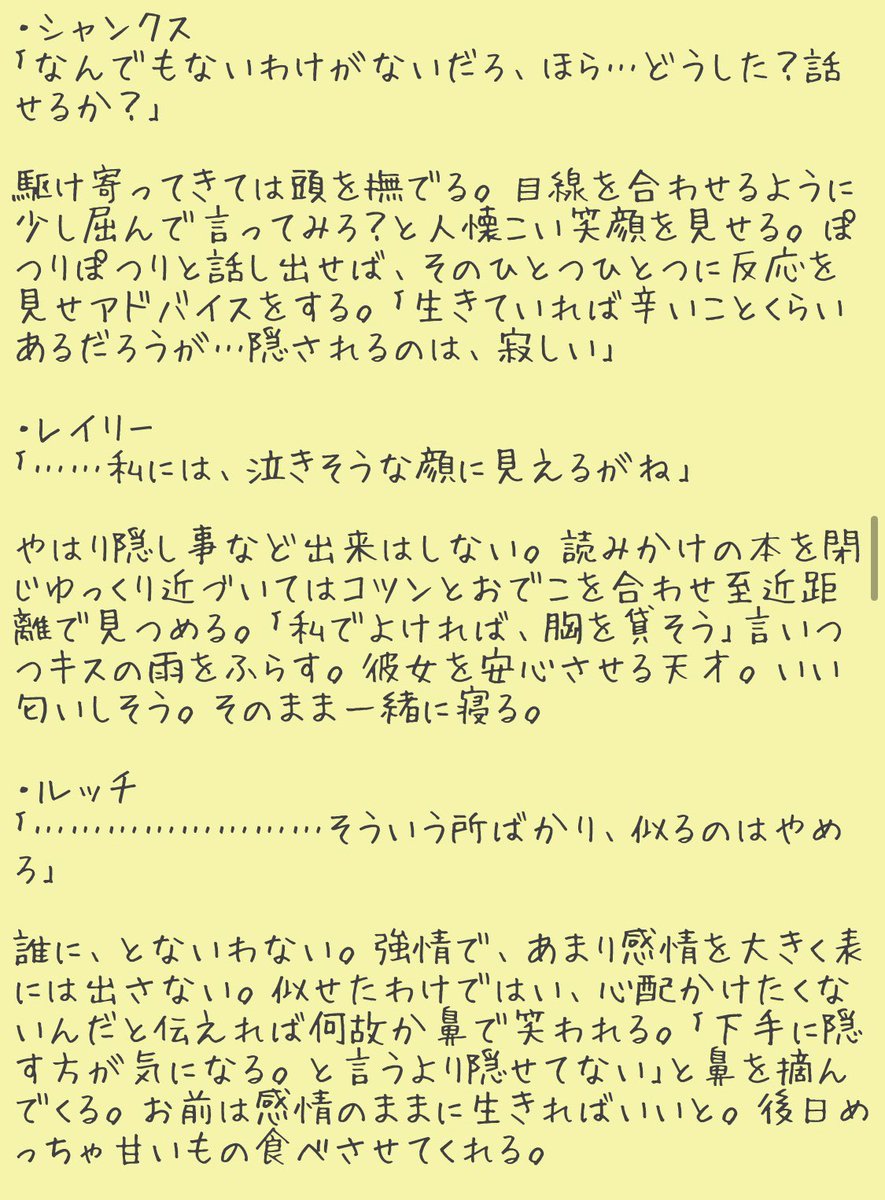 ・シャンクス
「なんでもないわけがないだろ、ほら…どうした?話
せるか?」
駆け寄ってきては頭を撫でる。目線を合わせるように
少し屈んで言ってみろ?と人懐こい笑顔を見せる。ぽ
つりぽつりと話し出せば、そのひとつひとつに反応を
見せアドバイスをする。「生きていれば辛いことくらい
あるだろうが…隠されるのは、寂しい」
・レイリー
「……私には、泣きそうな顔に見えるがね」
やはり隠し事など出来はしない。読みかけの本を閉
じゆっくり近づいてはコツンとおでこを合わせ至近距
離で見つめる。「私でよければ、胸を貸そう」言いつ
つキスの雨をふらす。彼女を安心させる天才。いい
匂いしそう。そのまま一緒に寝る。
・ルッチ
「……………………そういう所ばかり、似るのはやめ
ろ」
誰に、とないわない。強情で、あまり感情を大きく表
には出さない。似せたわけではい、心配かけたくな
いんだと伝えれば何故か鼻で笑われる。「下手に隠
す方が気になる。と言うより隠せてない」と鼻を摘ん
でくる。お前は感情のままに生きればいいと。後日め
っちゃ甘いもの食べさせてくれる。